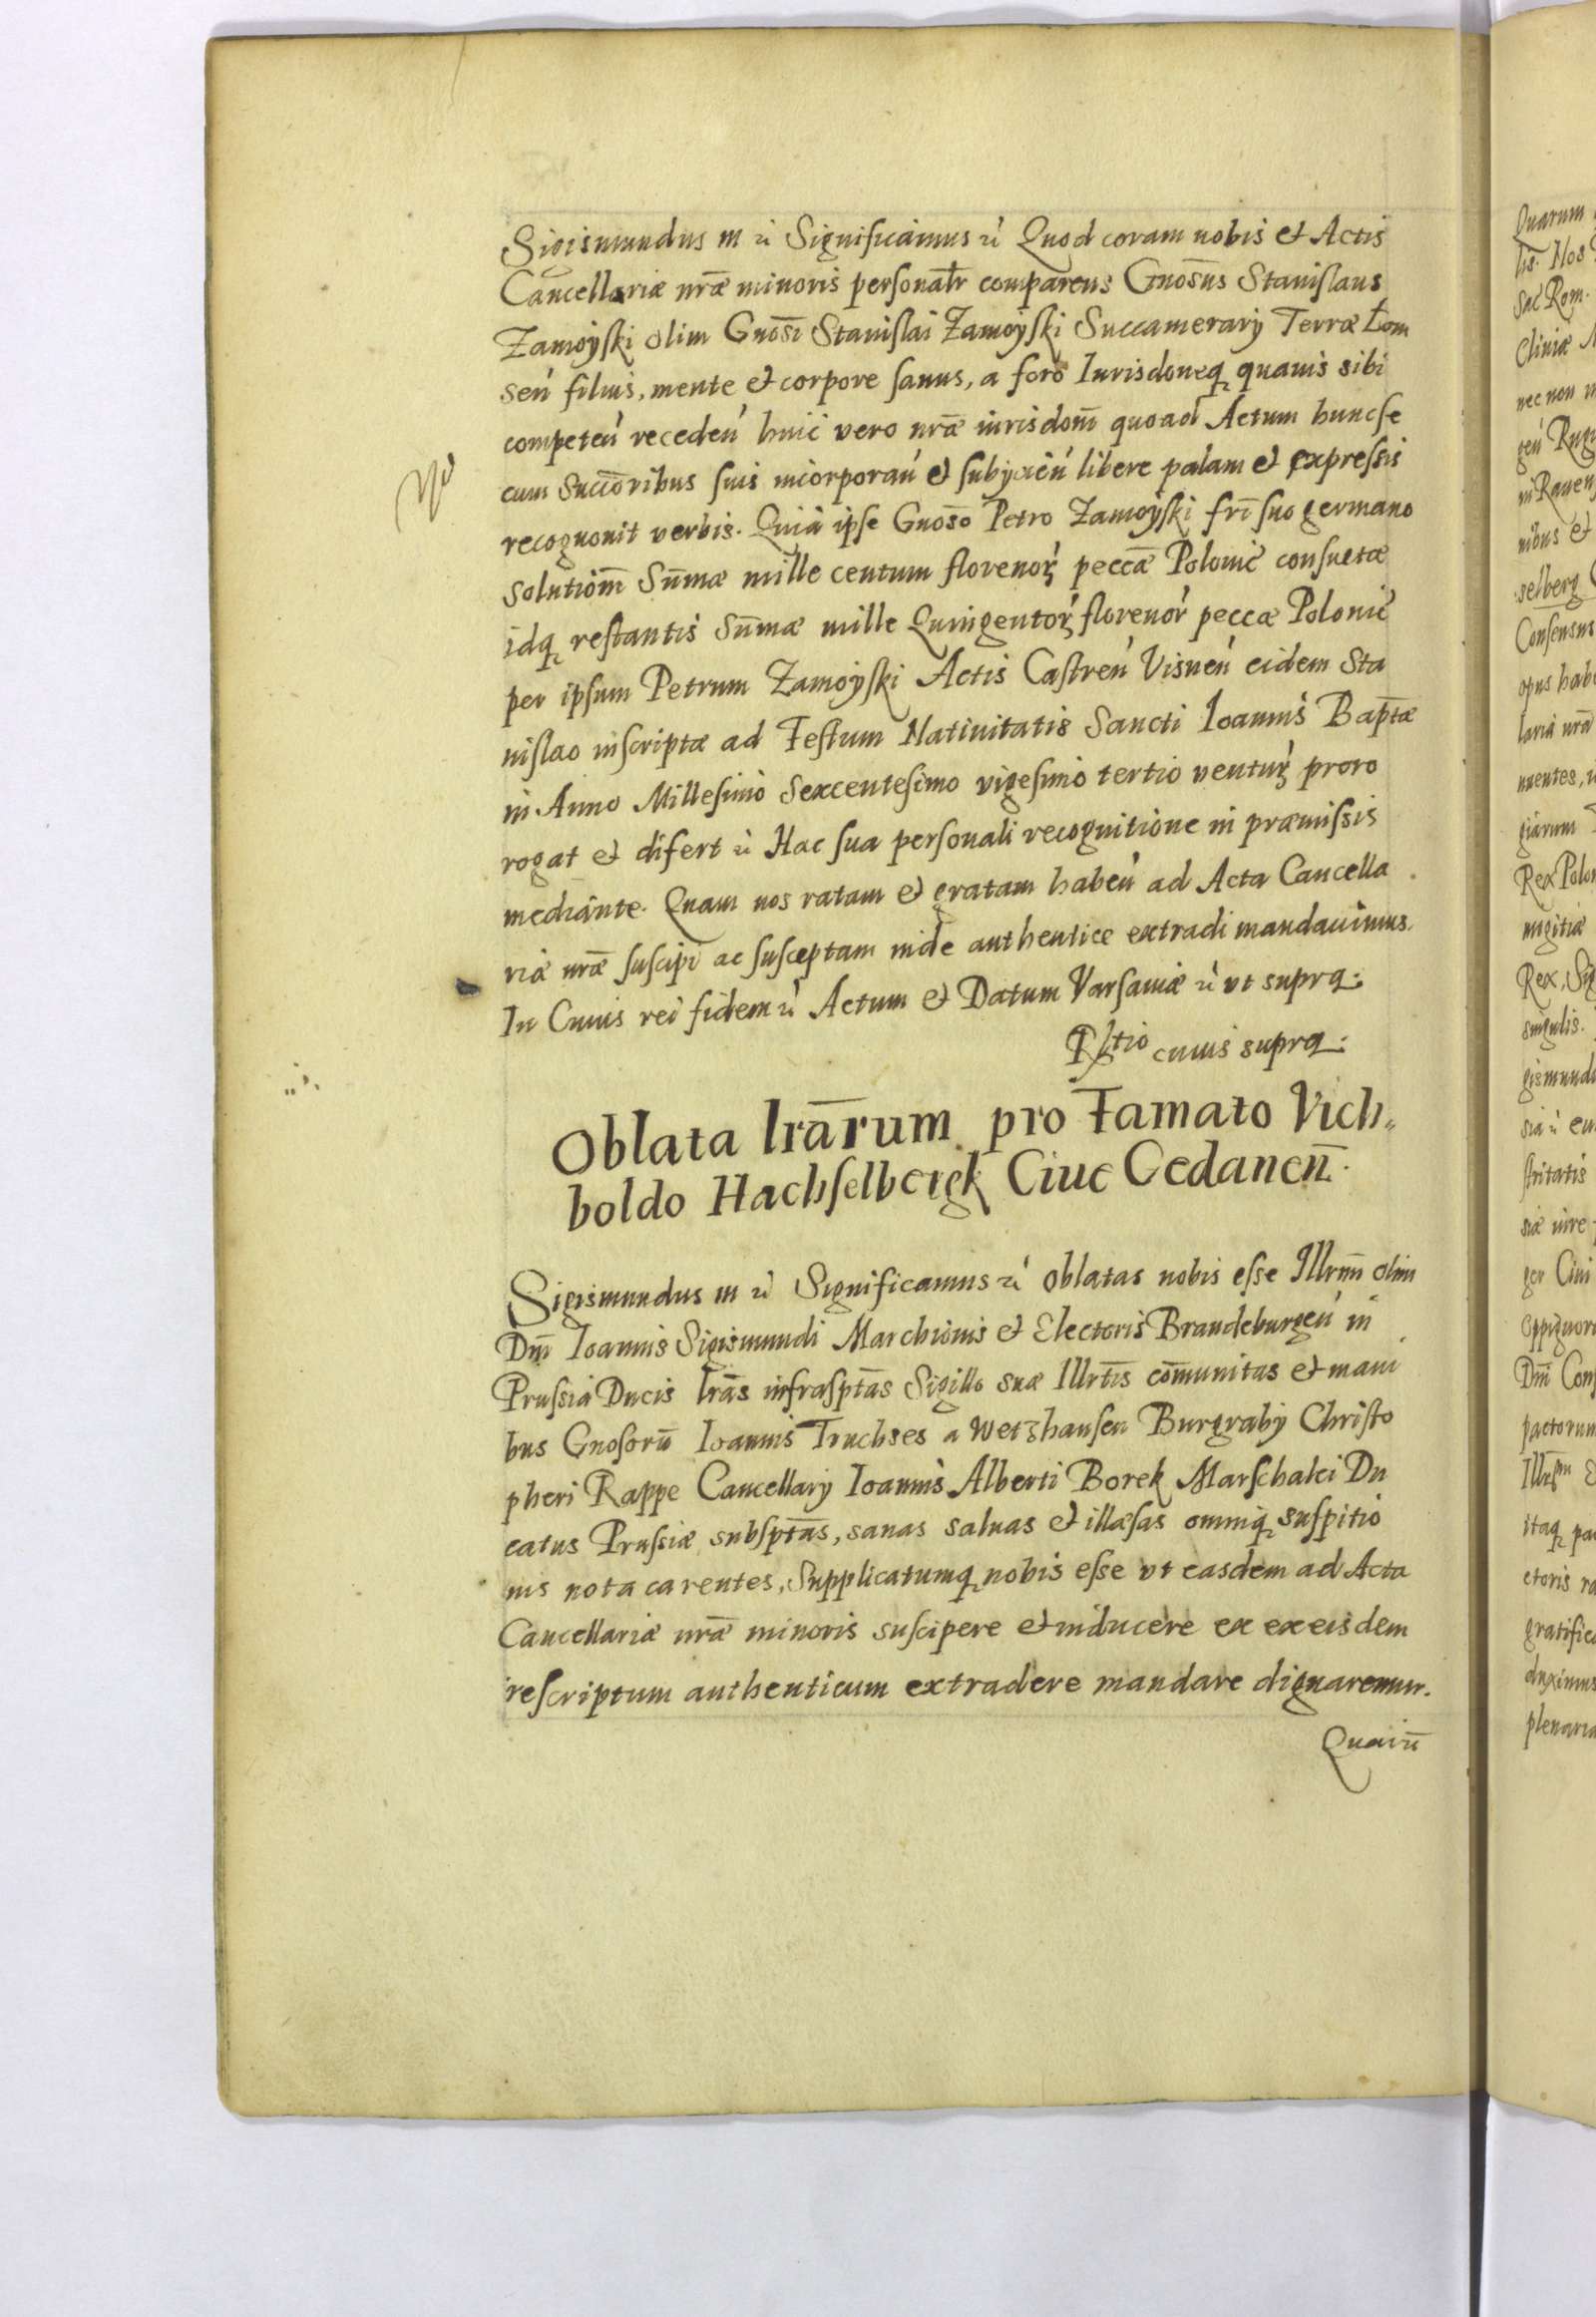 Sigismundus III etc Significamus etc Quod coram nobis et Actis
Cancellariæ nr̄æ minoris personalr̄ comparens Gnos̄us Stanislaus
Zamoÿski olim Gnos̄i Stanislai Zamoÿski Succamerarÿ Terræ Łom
sen̄ filius, mente et corpore sanus, a foro Iurisdoneq̨ quauis sibi
competen̄ receden̄ huic vero nr̄æ iurisdom̄ quoad Actum huncse
cum Succōribus suis incorporan̄ et subÿcien̄ libere palam et expressis
recognouit verbis. Quia ipse Gnos̄o Petro Zamoÿski fr̄i suo germano
solutiom̄ Sum̄æ mille centum florenor̨ pecc̄æ Polonic̄ consuetæ
idq̨ restantis Sum̄æ mille Quingentor̨ florenor̨ peccæ Polonic̄
per ipsum Petrum Zamoÿski Actis Castren̄ Visnen̄ eidem Sta
nislao inscriptæ ad Festum Natiuitatis Sancti Ioannis Bapt̄æ
in Anno Millesimo Sexcentesimo vigesimo tertio ventur̨ proro
rogat et difert etc Hac sua personali recognitione in præmissis
mediante. Quam nos ratam et gratam haben̄ ad Acta Cancella
riæ nr̄æ suscipi ac susceptam inde authentice extradi mandauimus.
In Cuius rei fidem etc Actum et Datum Varsauiæ etc vt supra.
Rl̄tio cuius supra.
Oblata lrārum pro Famato Vich„
boldo Hachselbergk Ciue Gedanen̄.
Sigismundus III etc Significamus etc oblatas nobis esse Illrm̄i olim
Dn̄i Ioannis Sigismundi Marchionis et Electoris Brandeburgen̄ in
Prussia Ducis lrās infraspt̄as Sigillo suæ Illrt̄is com̄unitas et mani
bus Gnosorū Ioannis Truchses a Wetzhausen Burgrabÿ Christo
pheri Rappe Cancellarÿ Ioannis Alberti Borek Marschalci Du
catus Prussiæ subspt̄as, sanas saluas et illæsas omniq̨ suspitio
nis nota carentes, Supplicatumq̨ nobis esse vt easdem ad Acta
Cancellariæ nr̄æ minoris suscipere et inducere ex ex eisdem
rescriptum authenticum extradere mandare dignaremur.
Quarū
Quarum
lis. Nos
Sac Rom.
Cliuiæ
nec non
gen̄ Rug
in Rauen
nibus et
selberg
Consensus
opus hab
laria nr̄a
nuentes,
giarum
Rex Polon
Rex, Sig
singulis.
gismund
stritatis
siæ iure
ger Ciui
Oppignor
Dn̄i Con
pactorum
itaq̨ pa
ctoris ra
gratifica
duximus
plenaria